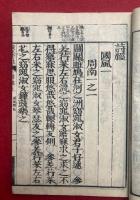 詩經
國風一
周南一之一
關關雎鳩在河之洲窈窕淑女君子好逑參
差荇菜左右流之窈窕淑女寤寐求之求之不
得寤寐思服悠哉悠哉輾轉反側參差荇菜
左右采之窈窕淑女琴瑟友之參差荇菜左右
芼之窈窕淑女鍾鼓樂之